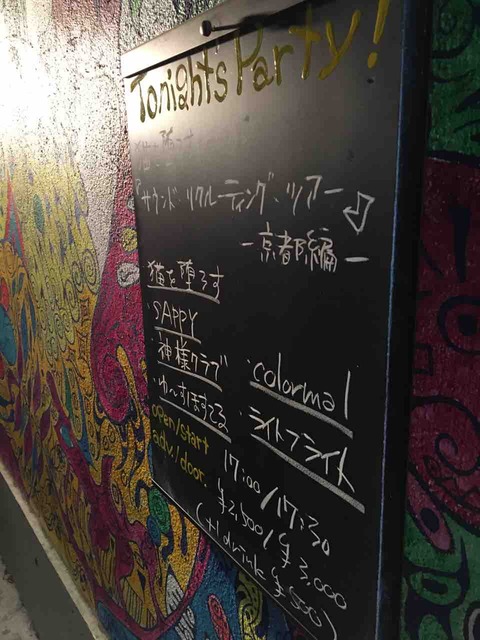 Tonight's Party!
『サウンド・リクルーティング・ツアー』
-京都編-
猫を堕ろす
・SAPPY
・神様クラブ
・ゆ~すほすてる
・colormal
・ライトフライト
open/start 17:00/17:30
adv./door. ¥2,500/¥3,000
(+1drink ¥500)